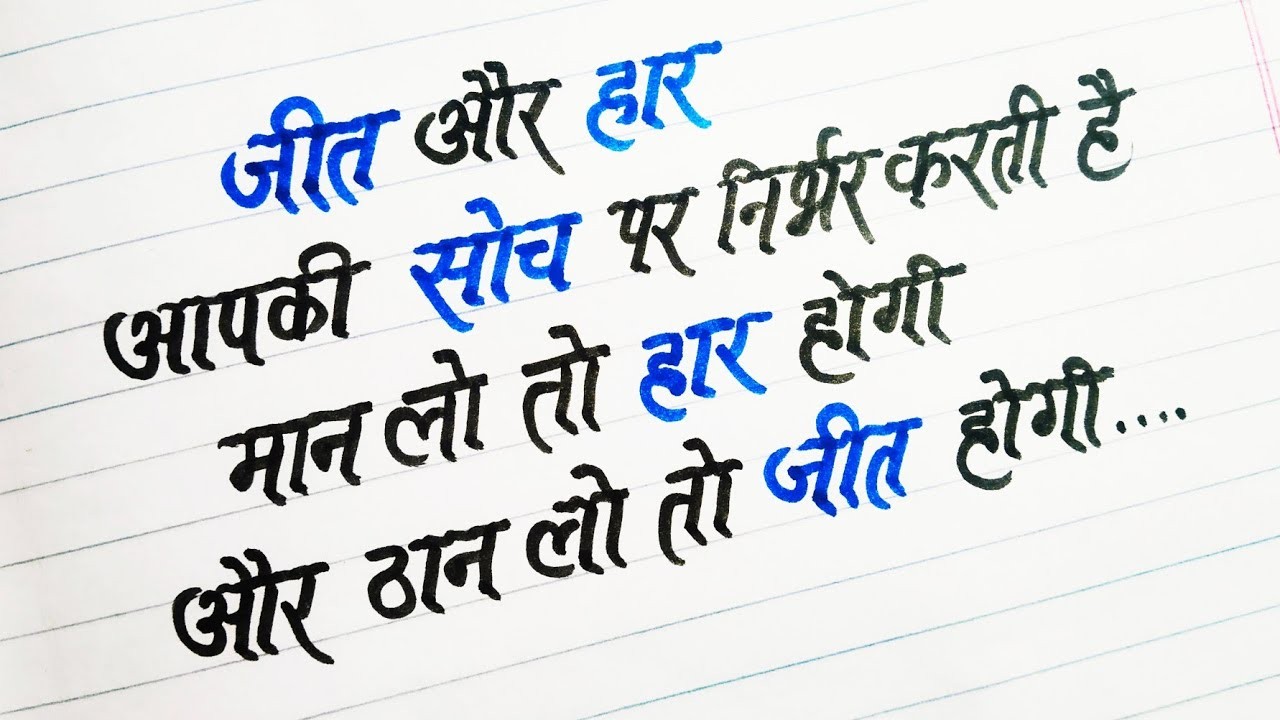 जीत और हार
आपकी सोच पर निर्भर करती है
मान लो तो हार होगी
और ठान लो तो जीत होगी....